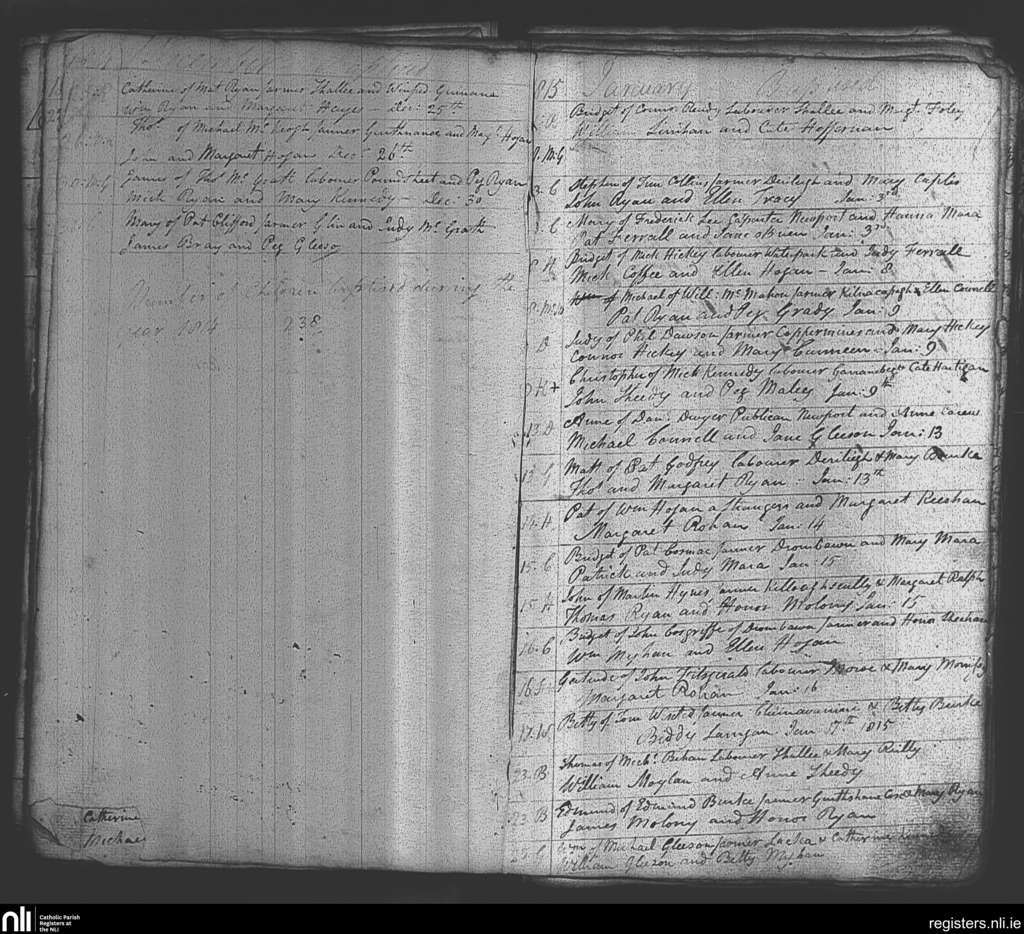 Catherine of Mat Ryan farmer Shallee and Winfred Guinane
Wm Ryan and Margaret Hayes Dec: 25th
Thos. of Michael McKeogh farmer and Margt. Hogan
John and Margaret Hogan Decr 26th
James of Thos McGrath labourer Pound Street and Peg Ryan
Mick Ryan and Mary Kennedy - Dec: 30
Mary of Pat Clifford farmer Glin and Judy McGrath
James Bray and Peg Gleeson
Number of Children baptised during the
year 1814 238
Catherine
Michael
1815 January Baptised
Bridget of Connr. labourer Shallee and Margt. Foley
William Linihan and Cate Heffernan
3. C Stephen of Tim Collins farmer Derileigh and Mary Caples
John Ryan and Ellen Tracy Jan: 3rd
3. C Mary of Frederick Lee Carpenter Newport and Hanna Mara
Pat Ferrall and Jane oBrien Jan: 3rd
8 H Bridget of Mick Hickey labourer Waterpark and Judy Ferrall
Mick Coffee and Ellen Hogan - Jan: 8
Michael of Will: McMahon farmer & Ellen Connell
Pat Ryan and Peg Grady Jan: 9
D Judy of Phil Dawson farmer Coppermines and Mary Hickey
Connor Hickey and Mary Cunneen - Jan: 9
Christopher of Mick Kennedy labourer & Cate Hartigan
John Sheedy and Peg Jan: 9th
13. D Anne of Dan: Dwyer Publican Newport and Anne
Michael Connell and Jane Gleeson Jan: 13
13. G Matt of Pat Godfrey labourer Derileigh & Mary Bourke
Thos and Margaret Ryan - Jan: 13th
14. H Pat of Wm Hogan a Stranger and Margaret Keeshan
Margaret Rohan Jan: 14
15. C Bridget of Pat Cormac farmer Drombawn and Mary Mara
Patrick and Judy Mara Jan: 15
15 H John of Martin Hynes farmer Killoghscully & Margaret Ralph
Thomas Ryan and Honor Molony Jan: 15
16. C Bridget of John Cosgriffe of Drombawn farmer and Honor Sheehan
Wm Meehan and Ellen Hogan
16. F Gertrude of John Fitzgerald labourer & Mary
Margaret Rohan Jan: 16
17. W Betty of Tom West farmer & Betty Burke
Biddy Larrigan Jan 17th 1815
23. B Thomas of Michl. Behan Labourer Shallee & Mary Reilly
William Moylan and Anne Sheedy
23 B Edmund of Edmund Burke farmer & Mary Ryan
James Molony and Honor Ryan
G Wm of Michael Gleeson farmer Lacka & Catherine
William Gleeson and Betty
nli Catholic Parish
Registers at
the NLI
registers.nli.ie